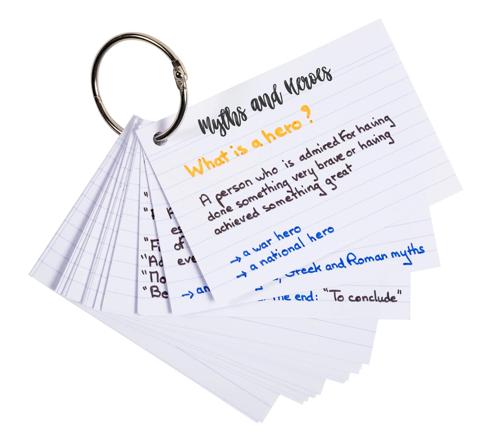 Myths and Heroes
What is a hero?
A person who is admired for having
done something very brave or having
achieved something great
→ a war hero
→ a national hero
Greek and Roman myths
→ an
the end: "To conclude"